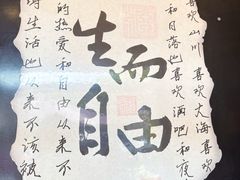 生而
自由
喜欢山川喜欢大海喜欢
和日落也喜欢酒吧和夜
的热爱和自由以来不
生活
以来不该被